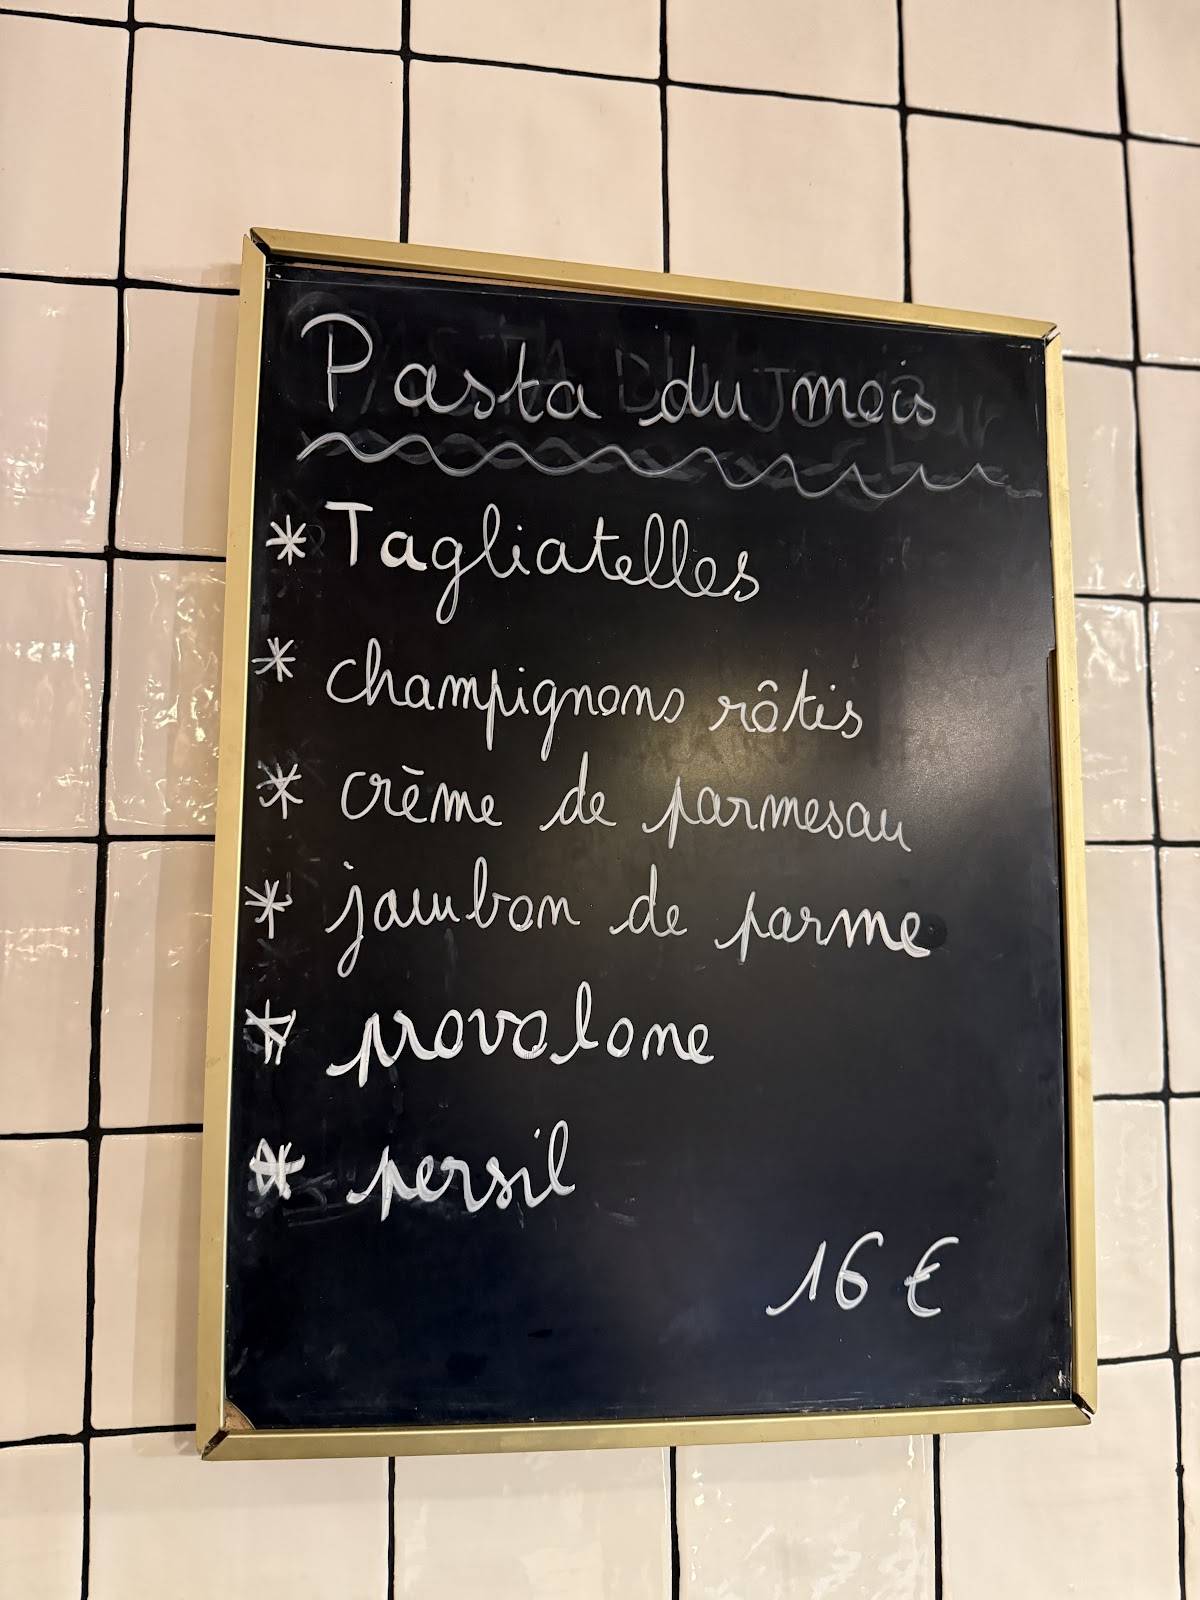 Pasta du mois
* Tagliatelles
* champignons rôtis
* crème de parmesan
* jambon de parme
* provolone
* persil
16 €